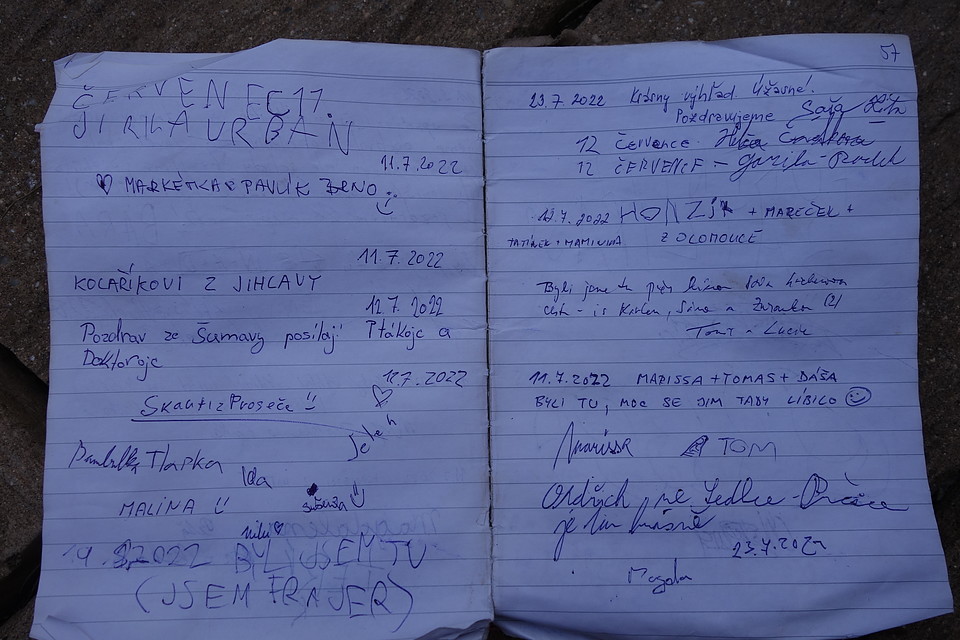 ČERVENEC 11.
JIRKA URBAN
11.7.2022
MARKÉTKA & PAVLÍK BRNO
11.7.2022
KOLAŘÍKOVI Z JIHLAVY
12.7.2022
Pozdrav ze Šumavy posílají Ptákoje a
Doktoroje
12.7.2022
Skauti z Proseče
Jeleh
Bambulka Tlapka
Ida
MALINA
niki
2022 BYL JSEM TU
(JSEM FRAJER)
57
23.7 2022 Krásný výhled Úžasné!
Pozdravujeme Saša
12 července.
12 ČERVENCE -
19.7.2022 HONZÍK + MAREČEK +
TATÍNEK + MAMINKA Z OLOMOUCE
Byli jsme tu
a Zuzanka (2)
Tom a Lucie
11.7.2022 MARISSA + TOMAS + DÁŠA
BYLI TU, MOC SE JIM TADY LÍBILO
Marissa TOM
Oldřich, Sedlce - Prčice
je tu krásně
23.7.2022
Magda